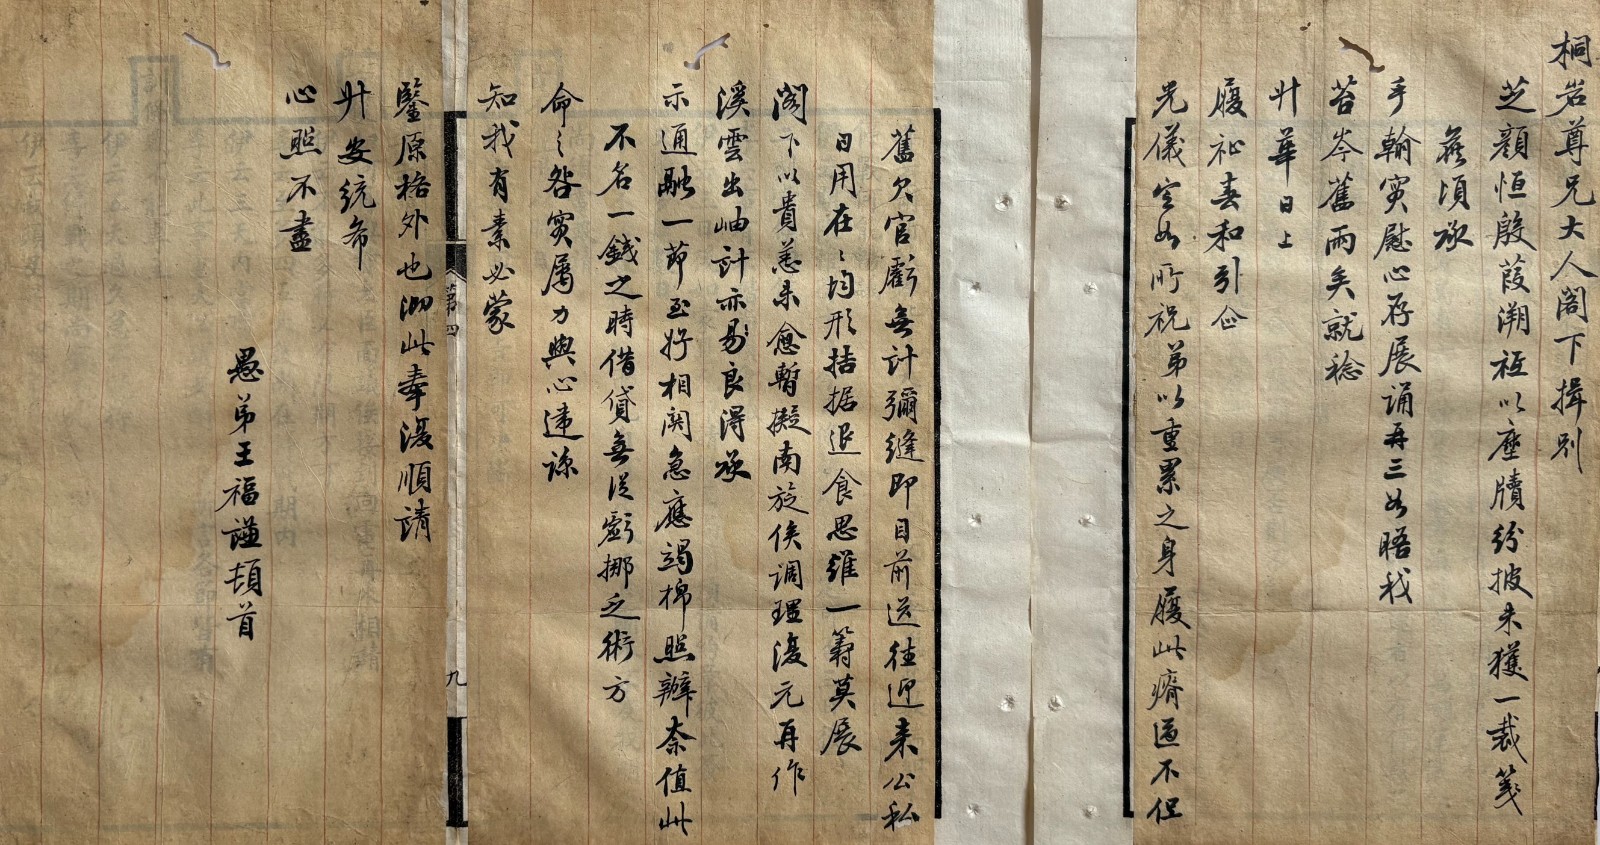 桐岩尊兄大人閣下揖別
芝顏恒殷葭溯祗以塵牘紛披未獲一裁箋
候頃承
手翰寔慰心存展誦再三如晤我
苔岑舊雨矣就稔
升華日上
履祉春和引企
光儀定如所祝弟以重累之身履此瘠區不但
舊欠官虧無計彌縫即目前送往迎來公私
日用在在均形拮据退食思維一籌莫展
閣下以貴恙未愈暫擬南旋俟調理復元再作
溪雲出岫計亦易良得承
示通融一節至好相関急應竭棉照辦奈值此
不名一錢之時借貸無從虧挪乏術方
命之咎寔屬力與心違諒
知我有素必蒙
鑒原格外也泐此奉復順請
升安統希
心照不盡
愚弟王福謙頓首
第四
九